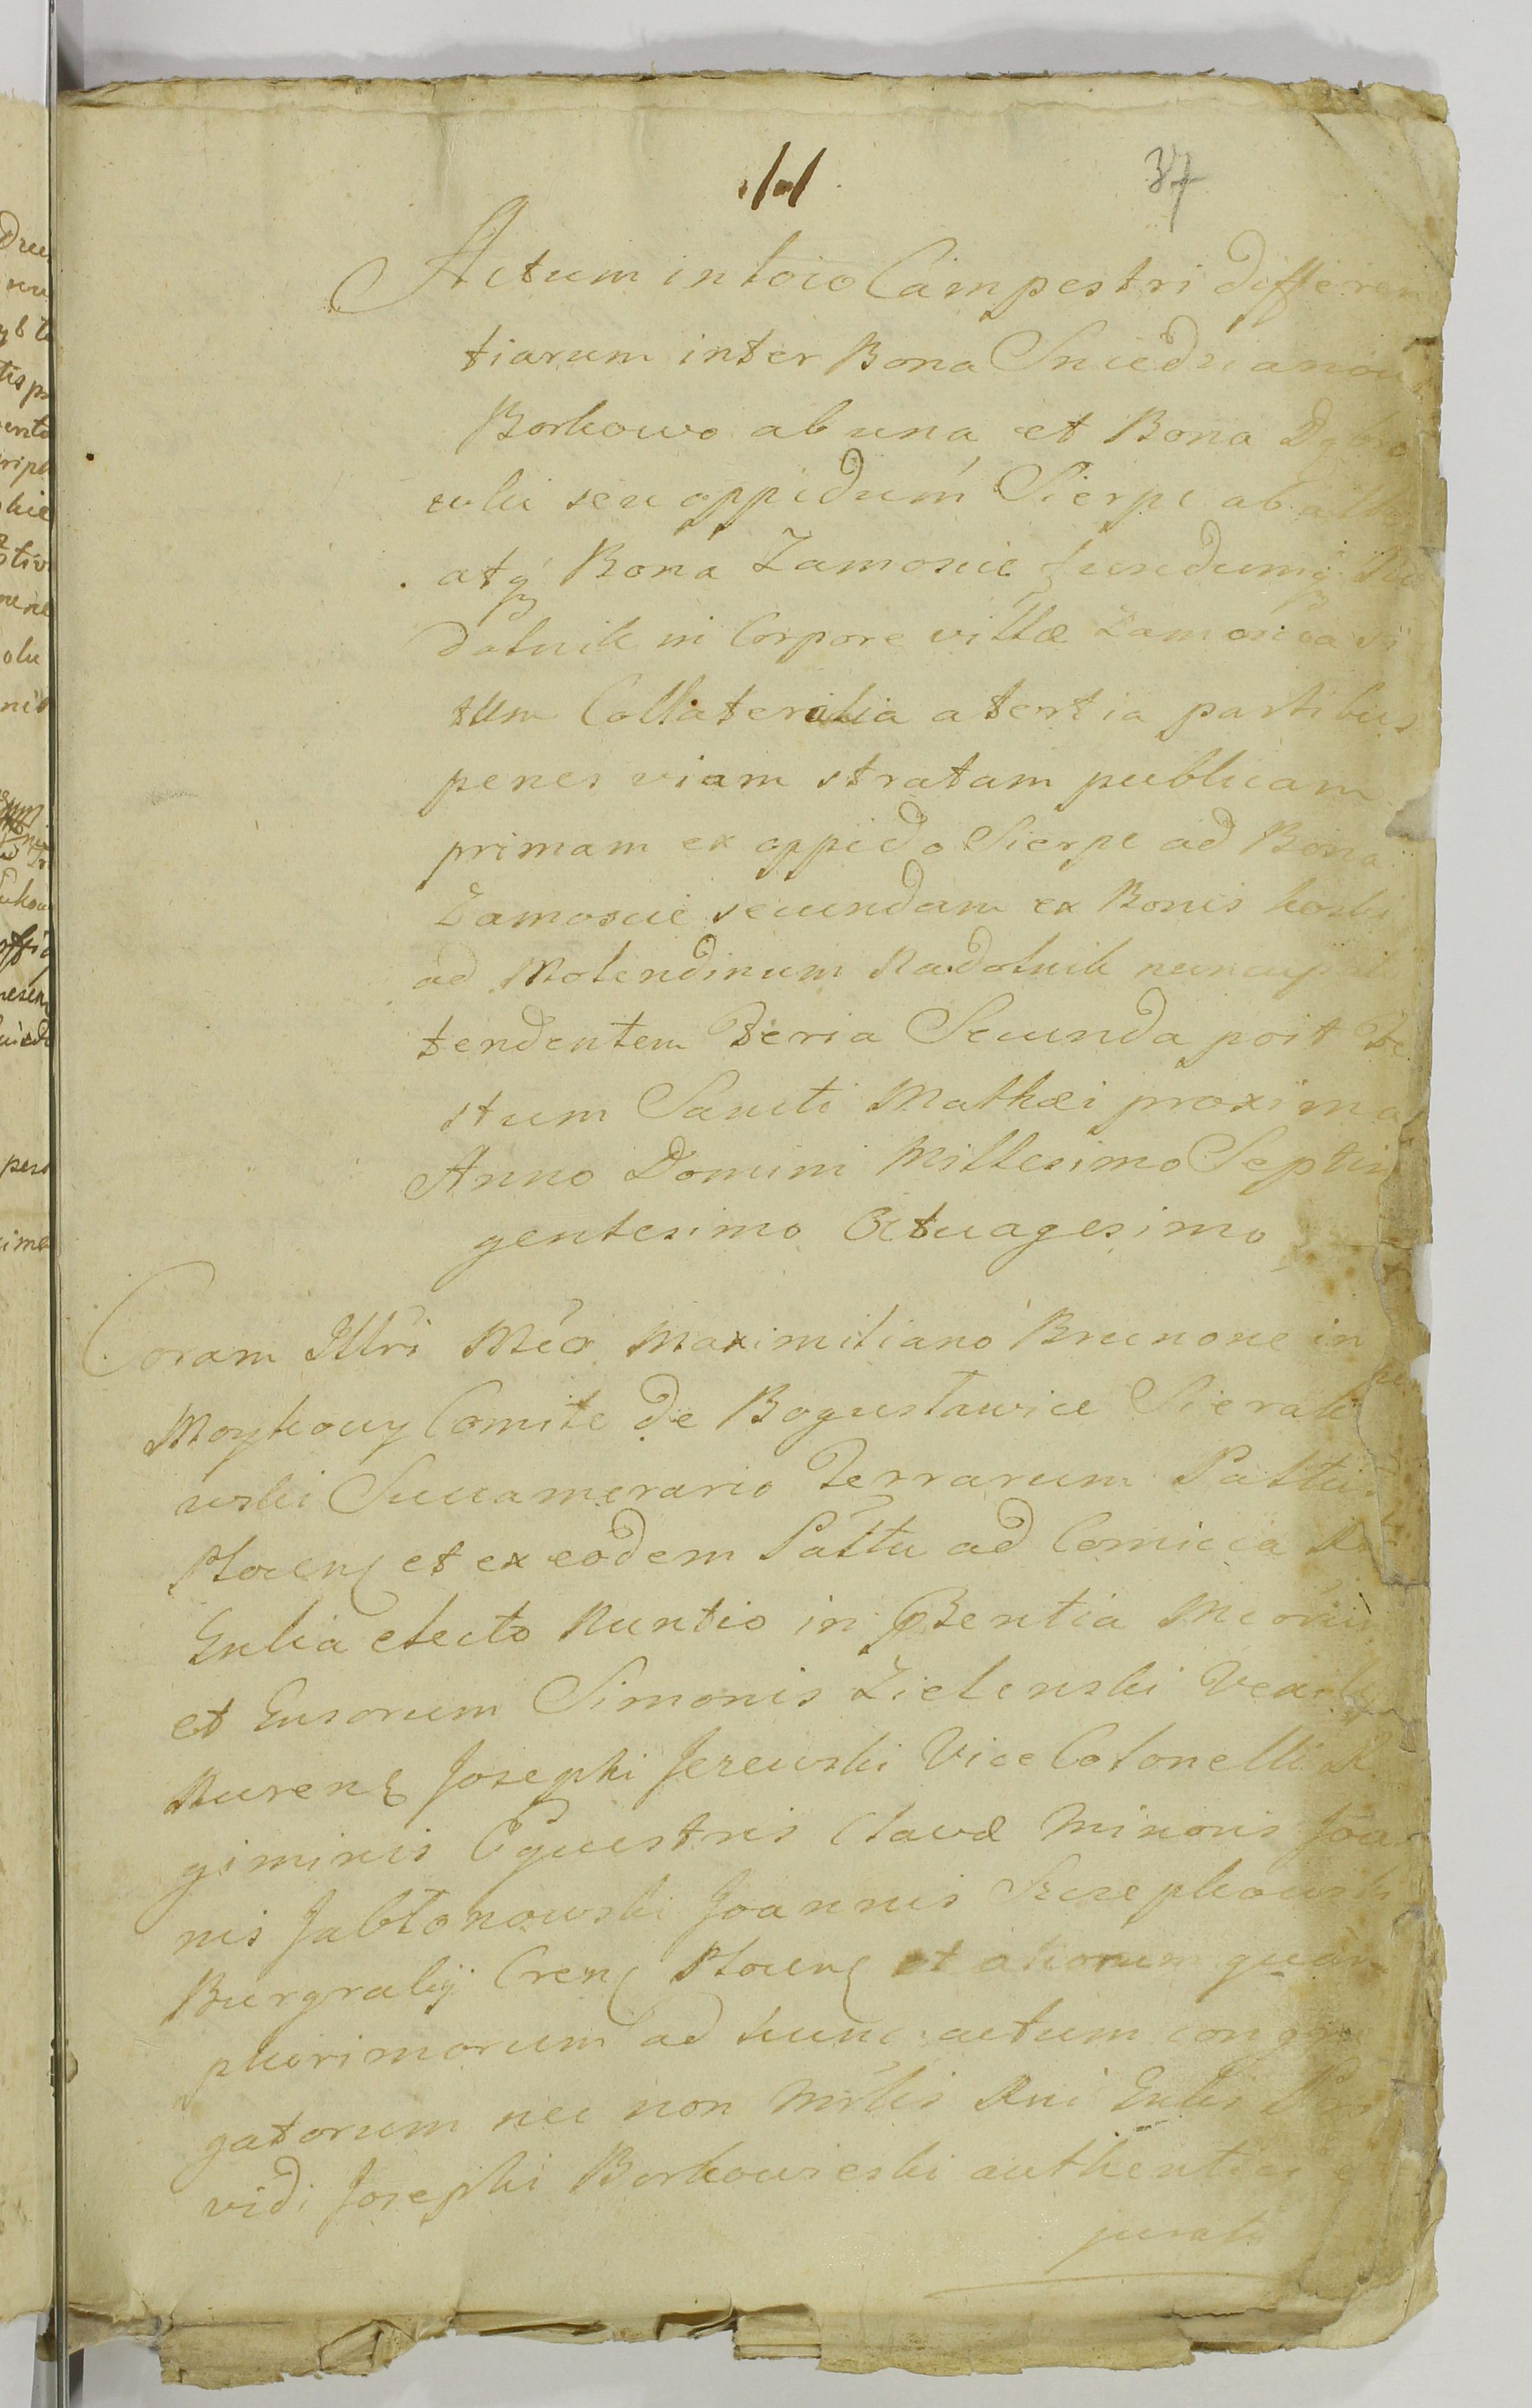 37
Actum in loco Campestri differen
tiarum inter Bona Sniedzanow
Borkowo ab una et Bona
wki seu oppidum Sierpc ab
atq Bona Zamoscie fundumq
dolnik in Corpore villæ Zamoscia Si
tum Collateralia a tertia partibus
penes viam stratam publicam
primam ex oppido Sierpc ad Bona
Zamoscie secundam ex Bonis koski
ad Molendinum Radolnik
tendentem Feria Secunda post Fe
stum Sancti Mathæi proxima
Anno Domini Millesimo Septin
gentesimo Octuagesimo
Coram Illri Mco Maximiliano Brunone in
Moykowy Comite de Bogusławice Sierak
wski Succamerario Terrarum Pałtus
Płocen et ex eodem Pałtu ad Comicia
Gnlia electo Nuntio in Pñtia Mcorum
et Gnsorum Simonis Zielenski
Rurens Josephi Jezewski Vice Colonelli R
giminis Equestris Clavæ Minoris Joan
nis Jabłonowski Joannis Szczepkowski
Burgrabij Cren Płocen et aliorum quam
plurimorum ad hunc actum congre
gatorum nec non Mrlis Rni Gnlis Pro
vidi Josephi Borkowieski authentici
jurati